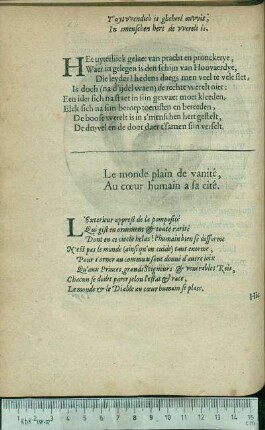 In smenschen hert de werelt is.
HEt uyterlijck gelaet van pracht en pronckerye,
Waer in gelegen is den schijn van Hoovaerdye,
Die leyder! hedens daegs men veel te vele siet,
Is doch (na d'ijdel waen) de rechte werelt niet:
Een ider sich na staet in sijn gewaet moet kleeden,
Elck sich na sijn beroep toerusten en bereeden,
De boose werelt is in s'menschen hert gestelt,
De duyvel en de doot daer t'samen sijn verselt.
Le monde plain de vanité,
Au cœur humain a sa cité.
L'Exterieur apprest de la pomposité
Qui gist en ornement & toute rarité
Dont en ce siecle helas! l'humain bien se difforme
N'est pas le monde (ainsi qu'on cuide) tant enorme,
Pour s'orner au commun sont donné d'autre loix
Qu'aux Princes, grands Seigneurs & venerables Rois,
Chacun se doibt parer selon l'estat & race,
Le monde & le Diable au cœur humain se place.